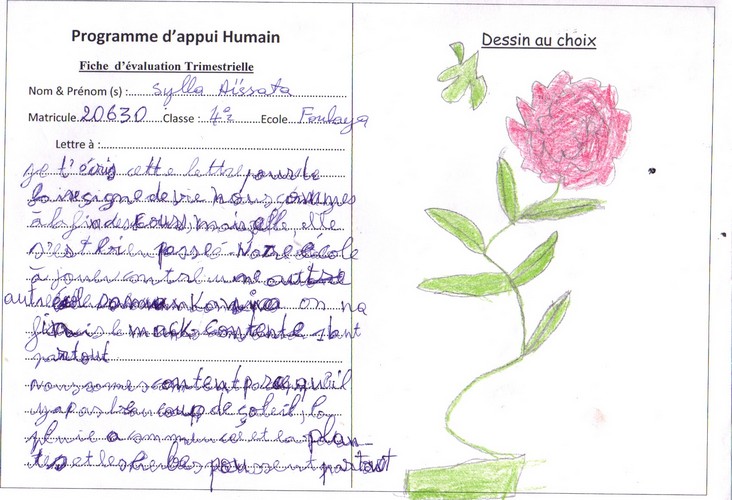 Programme d'appui Humain
Fiche d'évaluation Trimestrielle
Nom & Prénom (s) : Sylla Aïssata
Matricule 20630 Classe : 4e Ecole Foulaya
Lettre à :
je t'écris cette lettre pour te
signe de vie nous sommes
à la fin des cours, mais elle, elle
s'est bien passé Notre école
à jouer contre une autre
autre école on
fini le mack contente
partout
nous somes content parce qu'il
y a pas beaucoup de soleil, la
pluie a commencé et la plan-
tes et les herbes poussent partout
Dessin au choix